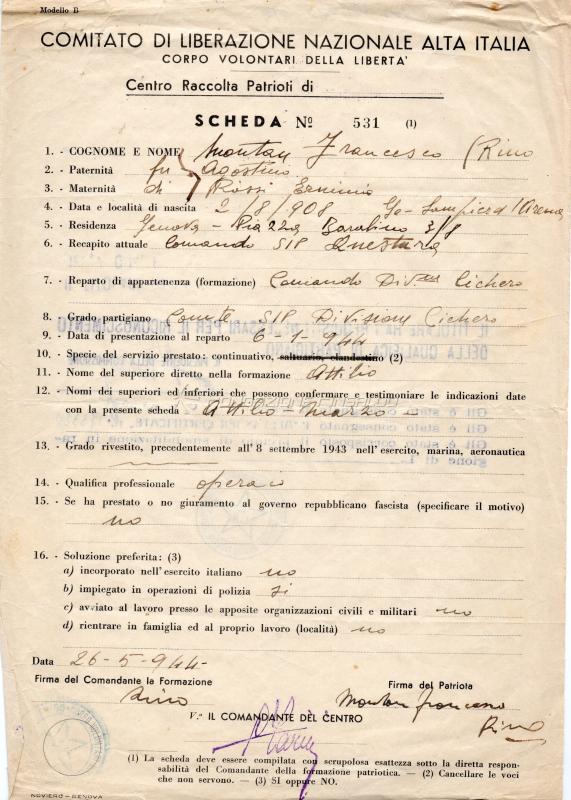 Modello B
COMITATO DI LIBERAZIONE NAZIONALE ALTA ITALIA
CORPO VOLONTARI DELLA LIBERTA'
Centro Raccolta Patrioti di
SCHEDA Nº 531 (1)
1. - COGNOME E NOME Montan Francesco (Rino
2. - Paternità fu Agostino
3. - Maternità di Rossi Erminia
4. - Data e località di nascita 2/8/908 Ge-Sampierd'Arena
5. - Residenza Genova - Via 22a Barabino 3/8
6. - Recapito attuale Comando SIP Questura
7. - Reparto di appartenenza (formazione) Comando Div. Cichero
8. - Grado partigiano Com.te SIP Divisione Cichero
9. - Data di presentazione al reparto 6-1-944
10. - Specie del servizio prestato: continuativo, saltuario, clandestino (2)
11. - Nome del superiore diretto nella formazione Attilio
12. - Nomi dei superiori ed inferiori che possono confermare e testimoniare le indicazioni date
con la presente scheda Attilio - Marzo -
13. - Grado rivestito, precedentemente all'8 settembre 1943 nell'esercito, marina, aeronautica
14. - Qualifica professionale operaio
15. - Se ha prestato o no giuramento al governo repubblicano fascista (specificare il motivo)
no
16. - Soluzione preferita: (3)
a) incorporato nell'esercito italiano no
b) impiegato in operazioni di polizia si
c) avviato al lavoro presso le apposite organizzazioni civili e militari no
d) rientrare in famiglia ed al proprio lavoro (località) no
Data 26-5-944-
Firma del Comandante la Formazione Firma del Patriota
Rino Montan Francesco
Rino
V.º IL COMANDANTE DEL CENTRO
(1) La scheda deve essere compilata con scrupolosa esattezza sotto la diretta respon-
sabilità del Comandante della formazione patriotica. — (2) Cancellare le voci
che non servono. — (3) SI oppure NO.
NOVIERO - GENOVA